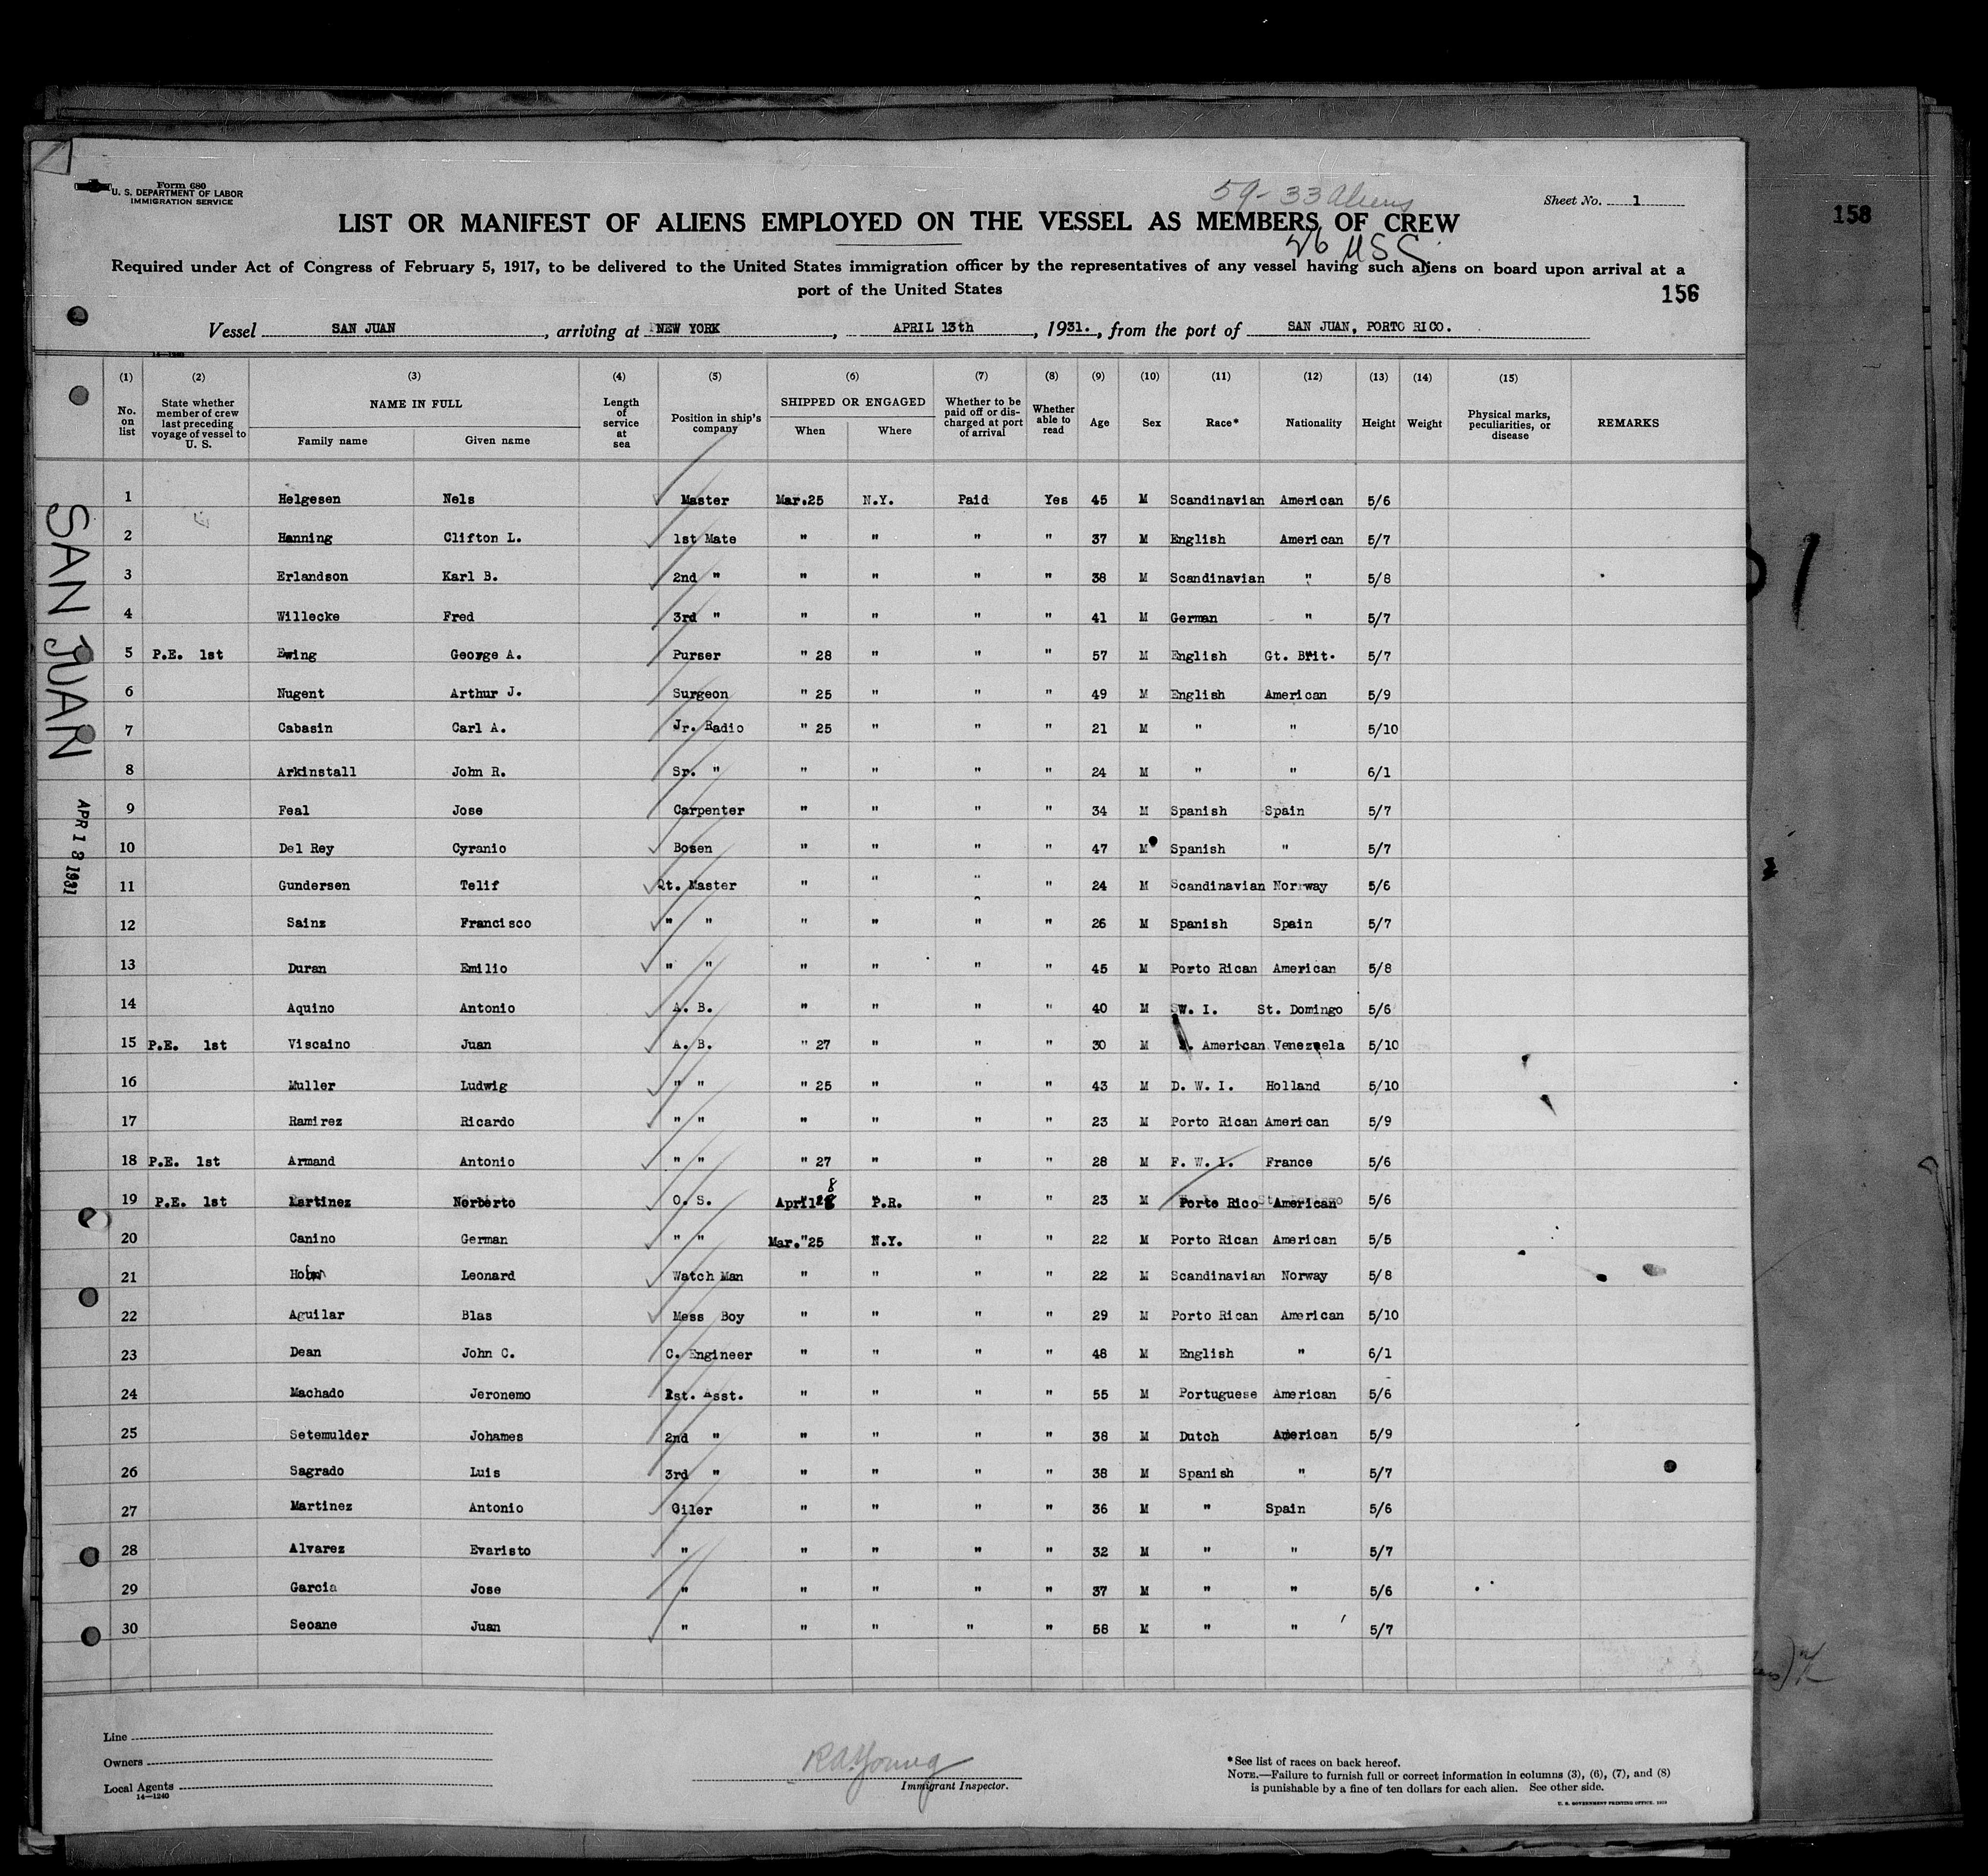 Form 680
U. S. DEPARTMENT OF LABOR
IMMIGRATION SERVICE
59 - 33 aliens
Sheet No. 1
158
LIST OR MANIFEST OF ALIENS EMPLOYED ON THE VESSEL AS MEMBERS OF CREW
26 USC
Required under Act of Congress of February 5, 1917, to be delivered to the United States immigration officer by the representatives of any vessel having such aliens on board upon arrival at a
port of the United States
156
Vessel SAN JUAN, arriving at NEW YORK, APRIL 13th, 1931., from the port of SAN JUAN, PORTO RICO.
14—1240
(1) (2) (3) (4) (5) (6) (7) (8) (9) (10) (11) (12) (13) (14) (15)
No. on list State whether member of crew last preceding voyage of vessel to U. S. NAME IN FULL Family name Given name Length of service at sea Position in ship's company SHIPPED OR ENGAGED When Where Whether to be paid off or discharged at port of arrival Whether able to read Age Sex Race* Nationality Height Weight Physical marks, peculiarities, or disease REMARKS
1 Helgesen Nels Master Mar.25 N.Y. Paid Yes 45 M Scandinavian American 5/6
2 Hanning Clifton L. 1st Mate " " " " 37 M English American 5/7
3 Erlandson Karl B. 2nd " " " " " 38 M Scandinavian " 5/8
4 Willecke Fred 3rd " " " " " 41 M German " 5/7
5 P.E. 1st Ewing George A. Purser " 28 " " " 57 M English Gt. Brit. 5/7
6 Nugent Arthur J. Surgeon " 25 " " " 49 M English American 5/9
7 Cabasin Carl A. Jr. Radio " 25 " " " 21 M " " 5/10
8 Arkinstall John R. Sr. " " " " " 24 M " " 6/1
9 Feal Jose Carpenter " " " " 34 M Spanish Spain 5/7
10 Del Rey Cyranio Bosen " " " " 47 M Spanish " 5/7
11 Gundersen Telif Qt. Master " " " " 24 M Scandinavian Norrway 5/6
12 Sainz Francisco " " " " " " 26 M Spanish Spain 5/7
13 Duran Emilio " " " " " " 45 M Porto Rican American 5/8
14 Aquino Antonio A. B. " " " " 40 M W. I. St. Domingo 5/6
15 P.E. 1st Viscaino Juan A. B. " 27 " " " 30 M American Venezuela 5/10
16 Muller Ludwig " " " 25 " " " 43 M D. W. I. Holland 5/10
17 Ramirez Ricardo " " " " " " 23 M Porto Rican American 5/9
18 P.E. 1st Armand Antonio " " " 27 " " " 28 M F. W. I. France 5/6
19 P.E. 1st Martinez Norberto O. S. April 8 P.R. " " 23 M Porto Rico American 5/6
20 Canino German " " Mar."25 N.Y. " " 22 M Porto Rican American 5/5
21 Leonard Watch Man " " " " 22 M Scandinavian Norway 5/8
22 Aguilar Blas Mess Boy " " " " 29 M Porto Rican American 5/10
23 Dean John C. C. Engineer " " " " 48 M English " 6/1
24 Machado Jeronemo 1st. Asst. " " " " 55 M Portuguese American 5/6
25 Setemulder Johames 2nd " " " " " 38 M Dutch American 5/9
26 Sagrado Luis 3rd " " " " " 38 M Spanish " 5/7
27 Martinez Antonio Giler " " " " 36 M " Spain 5/6
28 Alvarez Evaristo " " " " " 32 M " " 5/7
29 Garcia Jose " " " " " 37 M " " 5/6
30 Seoane Juan " " " " " 58 M " " 5/7
SAN JUAN
APR 13 1931
Line
Owners
Local Agents
14—1240
R A Young
Immigrant Inspector.
*See list of races on back hereof.
NOTE.—Failure to furnish full or correct information in columns (3), (6), (7), and (8)
is punishable by a fine of ten dollars for each alien. See other side.